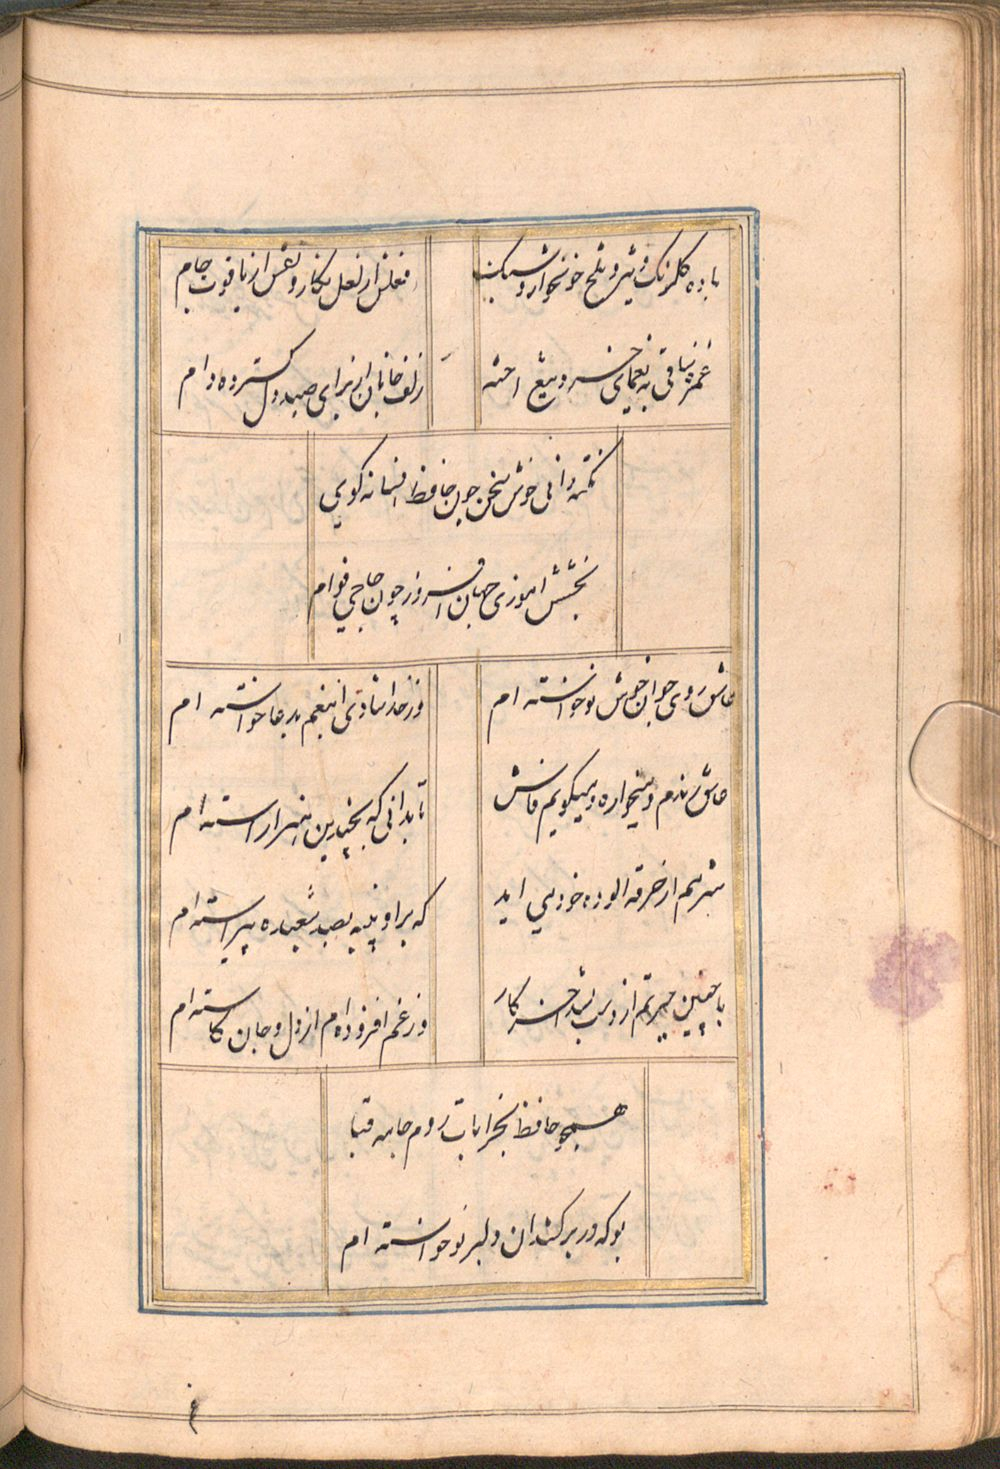 باده کلرنک و تیز و تلخ خونخوار و سبک
نقلش از لعل نکار و نقلش از یاقوت جام
غمزه ساقی به یغمای خرد تیغ اخته
زلف جانان از برای صید دل کسترده دام
نکته دانی خوش سخن چون حافظ افسانه کوی
بخشش اموزی جهان افروز چون حاجی قوام
عاشق روی جوانی خوش نوخواسته ام
وز خدا شادی اینغم بدعا خواسته ام
عاشق و رندم و میخواره و میکویم فاش
تا بدانی که بچندین هنر اراسته ام
شرمم از خرقه الوده خود می اید
که بر او پنبه بصد شعبده پیراسته ام
با چنین حیرتم از دست بشد اخر کار
وز غم افزوده ام از دل و جان کاسته ام
همچو حافظ بخرابات روم جامه قبا
بو که در بر کشد ان دلبر نوخواسته ام